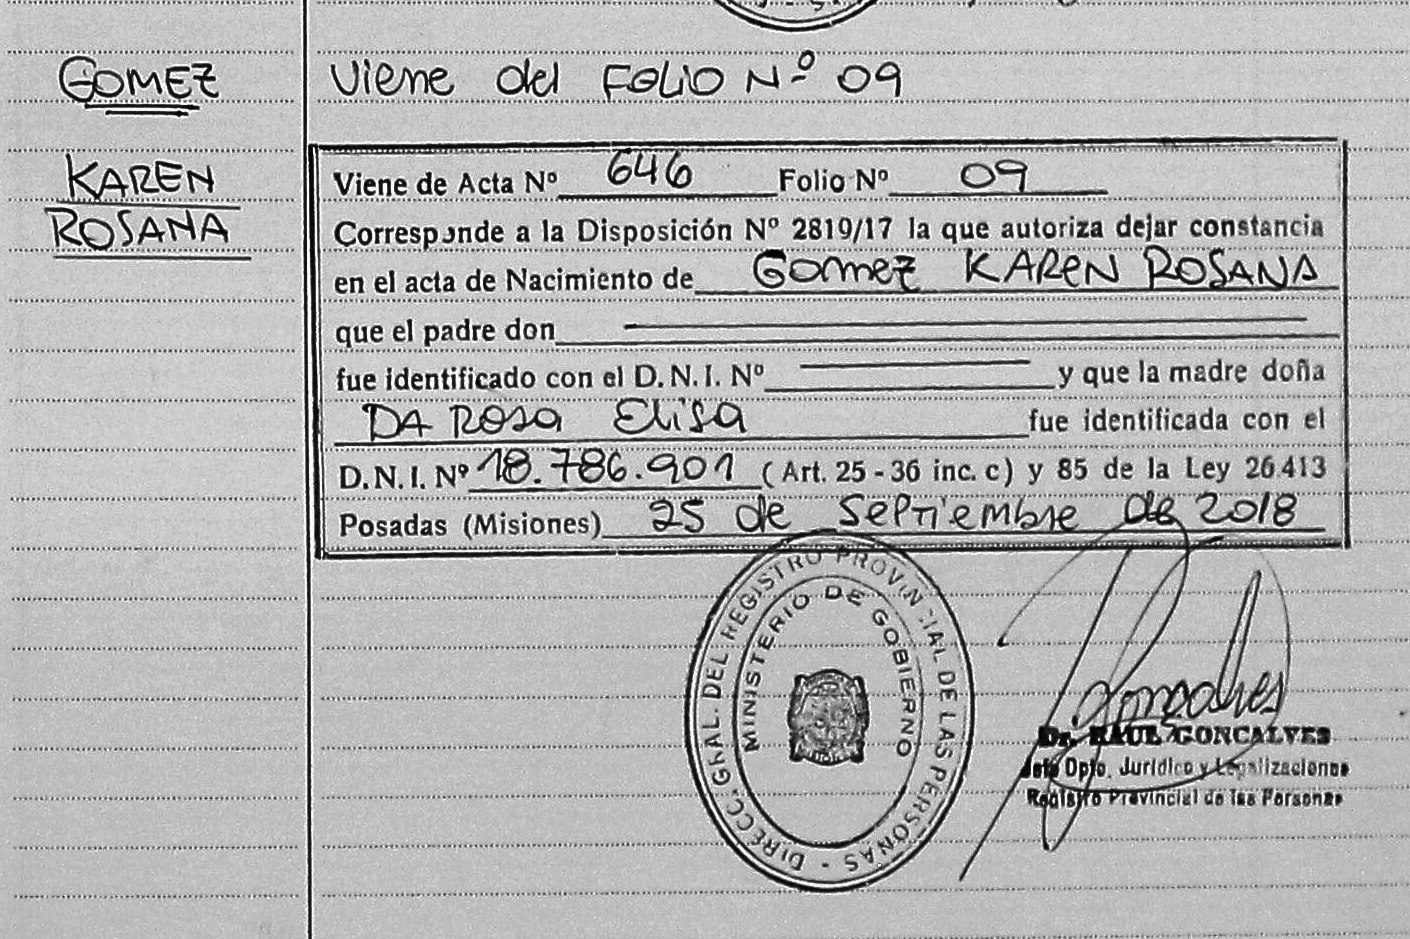 GOMEZ
KAREN
ROSANA
Viene del FOLIO Nº 09
Viene de Acta Nº 646 Folio Nº 09
Corresponde a la Disposición Nº 2819/17 la que autoriza dejar constancia
en el acta de Nacimiento de GOMEZ KAREN ROSANA
que el padre don
fue identificado con el D.N.I. Nº y que la madre doña
DA ROSA Elisa fue identificada con el
D.N.I. Nº 18.786.901 (Art. 25 - 36 inc. c) y 85 de la Ley 26.413
Posadas (Misiones) 25 de Septiembre de 2018
DIRECC. GRAL. DEL REGISTRO PROVINCIAL DE LAS PERSONAS -
MINISTERIO DE GOBIERNO
Goncalves
Dr. RAUL GONCALVES
Jefe Dpto. Jurídico y Legalizaciones
Registro Provincial de las Personas